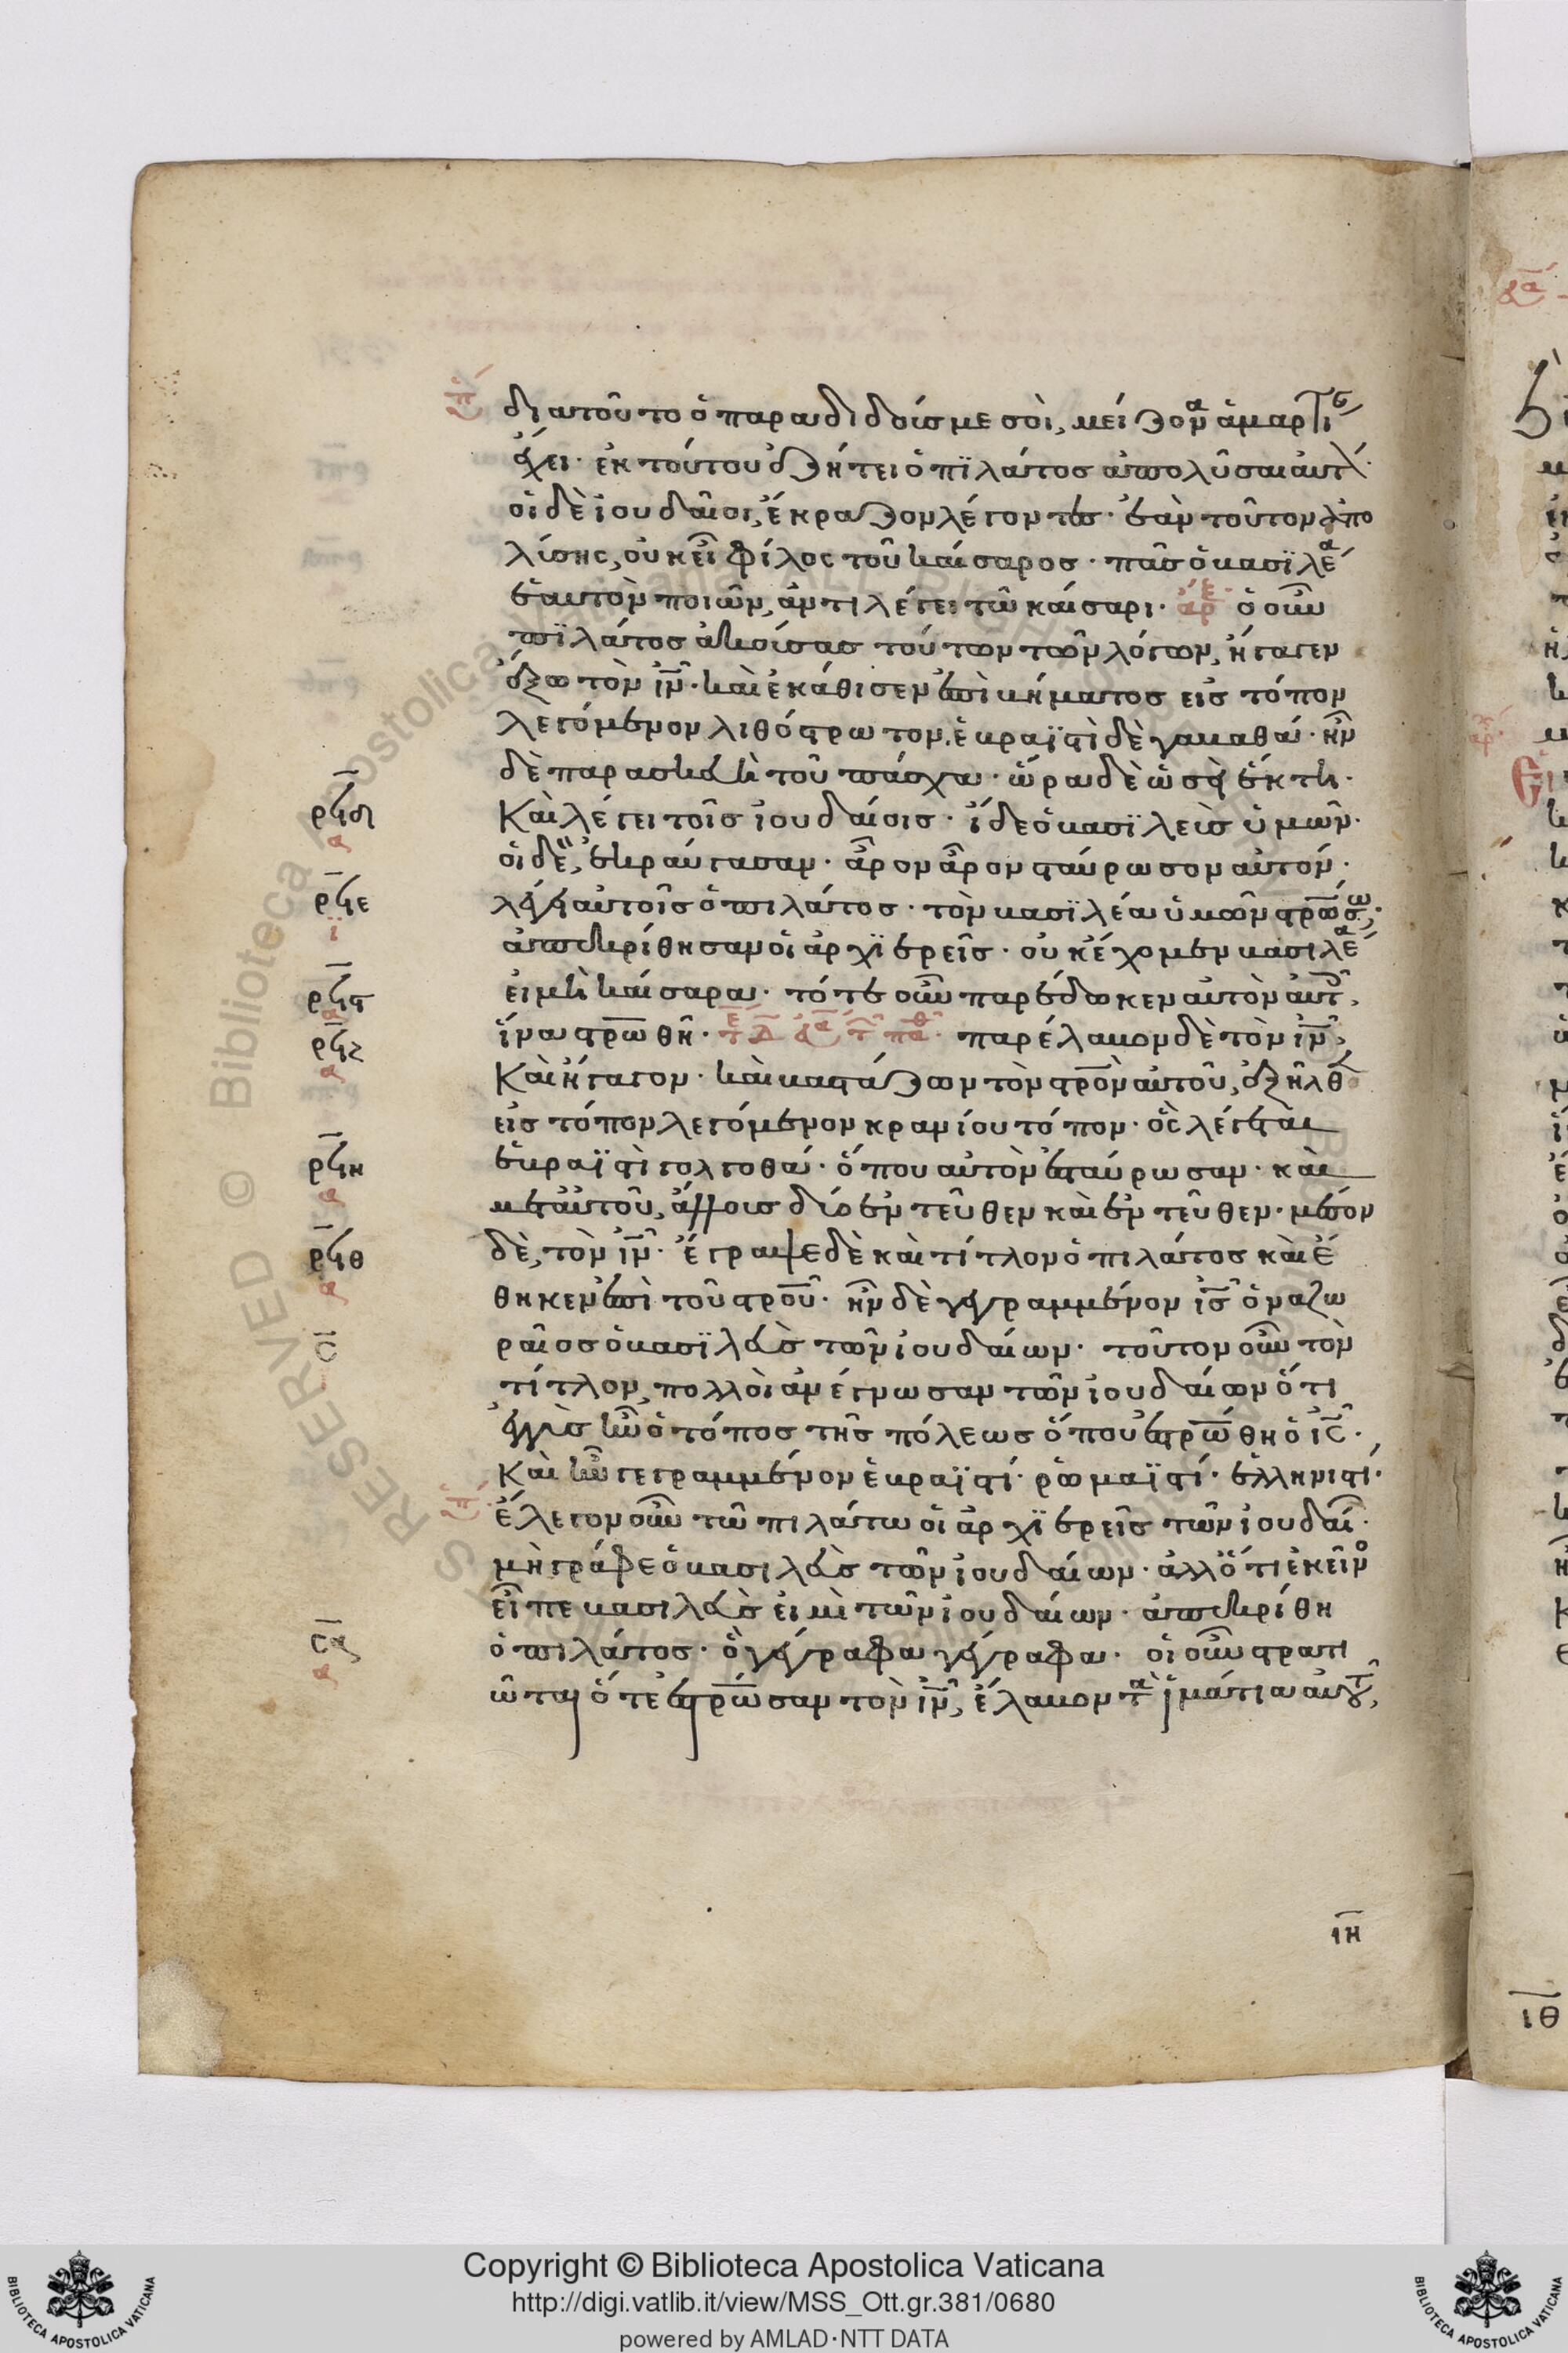 διατοῦτο ὁ παραδιδούς με σοὶ, μείζονα ἁμαρτί
ἔχει· ἐκ τούτου ἐζήτει ὁ πϊλάτος ἀπολῦσαι αὐτὸν·
οἱ δὲ ἰουδαῖοι, ἔκραζον λέγοντες· ἐὰν τοῦτον ἀπο
λύσης, οὐκ εἶ φίλος τοῦ καίσαρος· πᾶς ὁ βασϊλέα
ἑαυτὸν ποιῶν, ἀντιλέγει τῶ καίσαρι· ἀρ ὁ οὖν
πϊλάτος ἀκούσας τούτων τῶν λόγων, ἤγαγεν
ἔξω τὸν ιν· καὶ ἐκάθισεν ἐπὶ βήματος εἰς τόπον
λεγόμενον λιθόστρωτον, ἑβραϊστὶ δὲ γαβαθά· ἦν
δὲ παρασκευὴ τοῦ πάσχα· ὥρα δὲ ὡσεὶ ἕκτη·
Καὶ λέγει τοῖς ἰουδαίοις· ἴδε ὁ βασϊλεὺς ὑμῶν·
οἱ δὲ, ἐκραύγασαν· ἆρον ἆρον σταύρωσον αὐτόν·
λέγει αὐτοῖς ὁ πιλάτος· τὸν βασϊλέα ὑμῶν στρώσω;
ἀπεκρίθησαν οἱ ἀρχϊερεῖς· οὐκ ἔχομεν βασιλέα
εἰ μὴ καίσαρα· τότε οὖν παρέδωκεν αὐτὸν αὐτ,
ἵνα στρωθῆ· παρέλαβον δὲ τὸν ιν,
Καὶ ἤγαγον· καὶ βαστάζων τὸν στρον αὐτοῦ, ἐξῆλθ
εἰς τόπον λεγόμενον κρανίου τόπον· ὃς λέγεται
ἑβραϊστὶ γολγοθά· ὅπου αὐτὸν ἐσταύρωσαν· καὶ
μετ αὐτοῦ, ἄλλους δύο ἐντεῦθεν καὶ ἐντεῦθεν· μέσον
δὲ, τὸν ιν· ἔγραψε δὲ καὶ τίτλον ὁ πιλάτος καὶ ἔ
θηκεν ἐπὶ τοῦ στρου· ἦν δὲ γεγραμμένον ις ὁ ναζω
ραῖος ὁ βασϊλεὺς τῶν ἰουδαίων· τοῦτον οὖν τὸν
τίτλον, πολλοὶ ἀνέγνωσαν τῶν ἰουδαίων ὅτι
ἐγγὺς ἦν ὁ τόπος τῆς πόλεως ὅπου ἐστρώθη ὁ ις·
Καὶ ἦν γεγραμμένον ἑβραϊστί· ῥωμαϊστί· ἑλληνιστί·
ἔλεγον οὖν τῶ πιλάτω οἱ ἀρχϊερεῖς τῶν ἰουδαί·
μὴ γράφε ὁ βασιλεὺς τῶν ἰουδαίων· ἀλλ ὅτι ἐκεῖνο
εἶπε βασιλεὺς εἰμὶ τῶν ἰουδαίων· ἀπεκρίθη
ὁ πιλάτος· ὃ γέγραφα γέγραφα· οἱ οὖν στρατι
ῶται ὅτε ἐστρώσαν τὸν ιν, ἔλαβον τὰ ἱμάτια αὐτοῦ,
ρϟδ
α
ρϟε
ι
ρϟϛ
α
ρϟζ
α
ρϟη
α
ρϟθ
α
σ
σα
α
ιη
ιθ
Copyright © Biblioteca Apostolica Vaticana
http://digi.vatlib.it/view/MSS_Ott.gr.381/0680
powered by AMLAD·NTT DATA
BIBLIOTECA APOSTOLICA VATICANA
BIBLIOTECA APOSTOLICA VATICANA